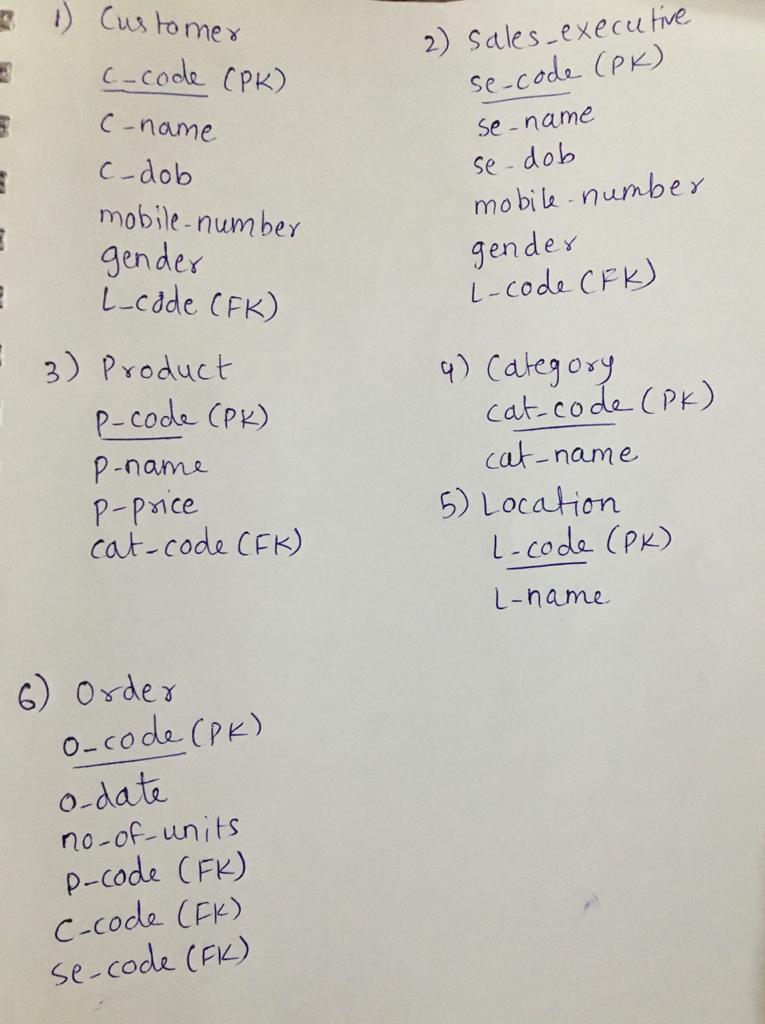 1) Customer
C-code (PK)
C-name
C-dob
mobile-number
gender
L-code (FK)
2) Sales_executive
se-code (PK)
se-name
se-dob
mobile-number
gender
L-code (FK)
3) Product
P-code (PK)
P-name
P-price
cat-code (FK)
4) Category
cat-code (PK)
cat-name
5) Location
L-code (PK)
L-name
6) Order
O-code (PK)
O-date
no-of-units
P-code (FK)
C-code (FK)
se-code (FK)